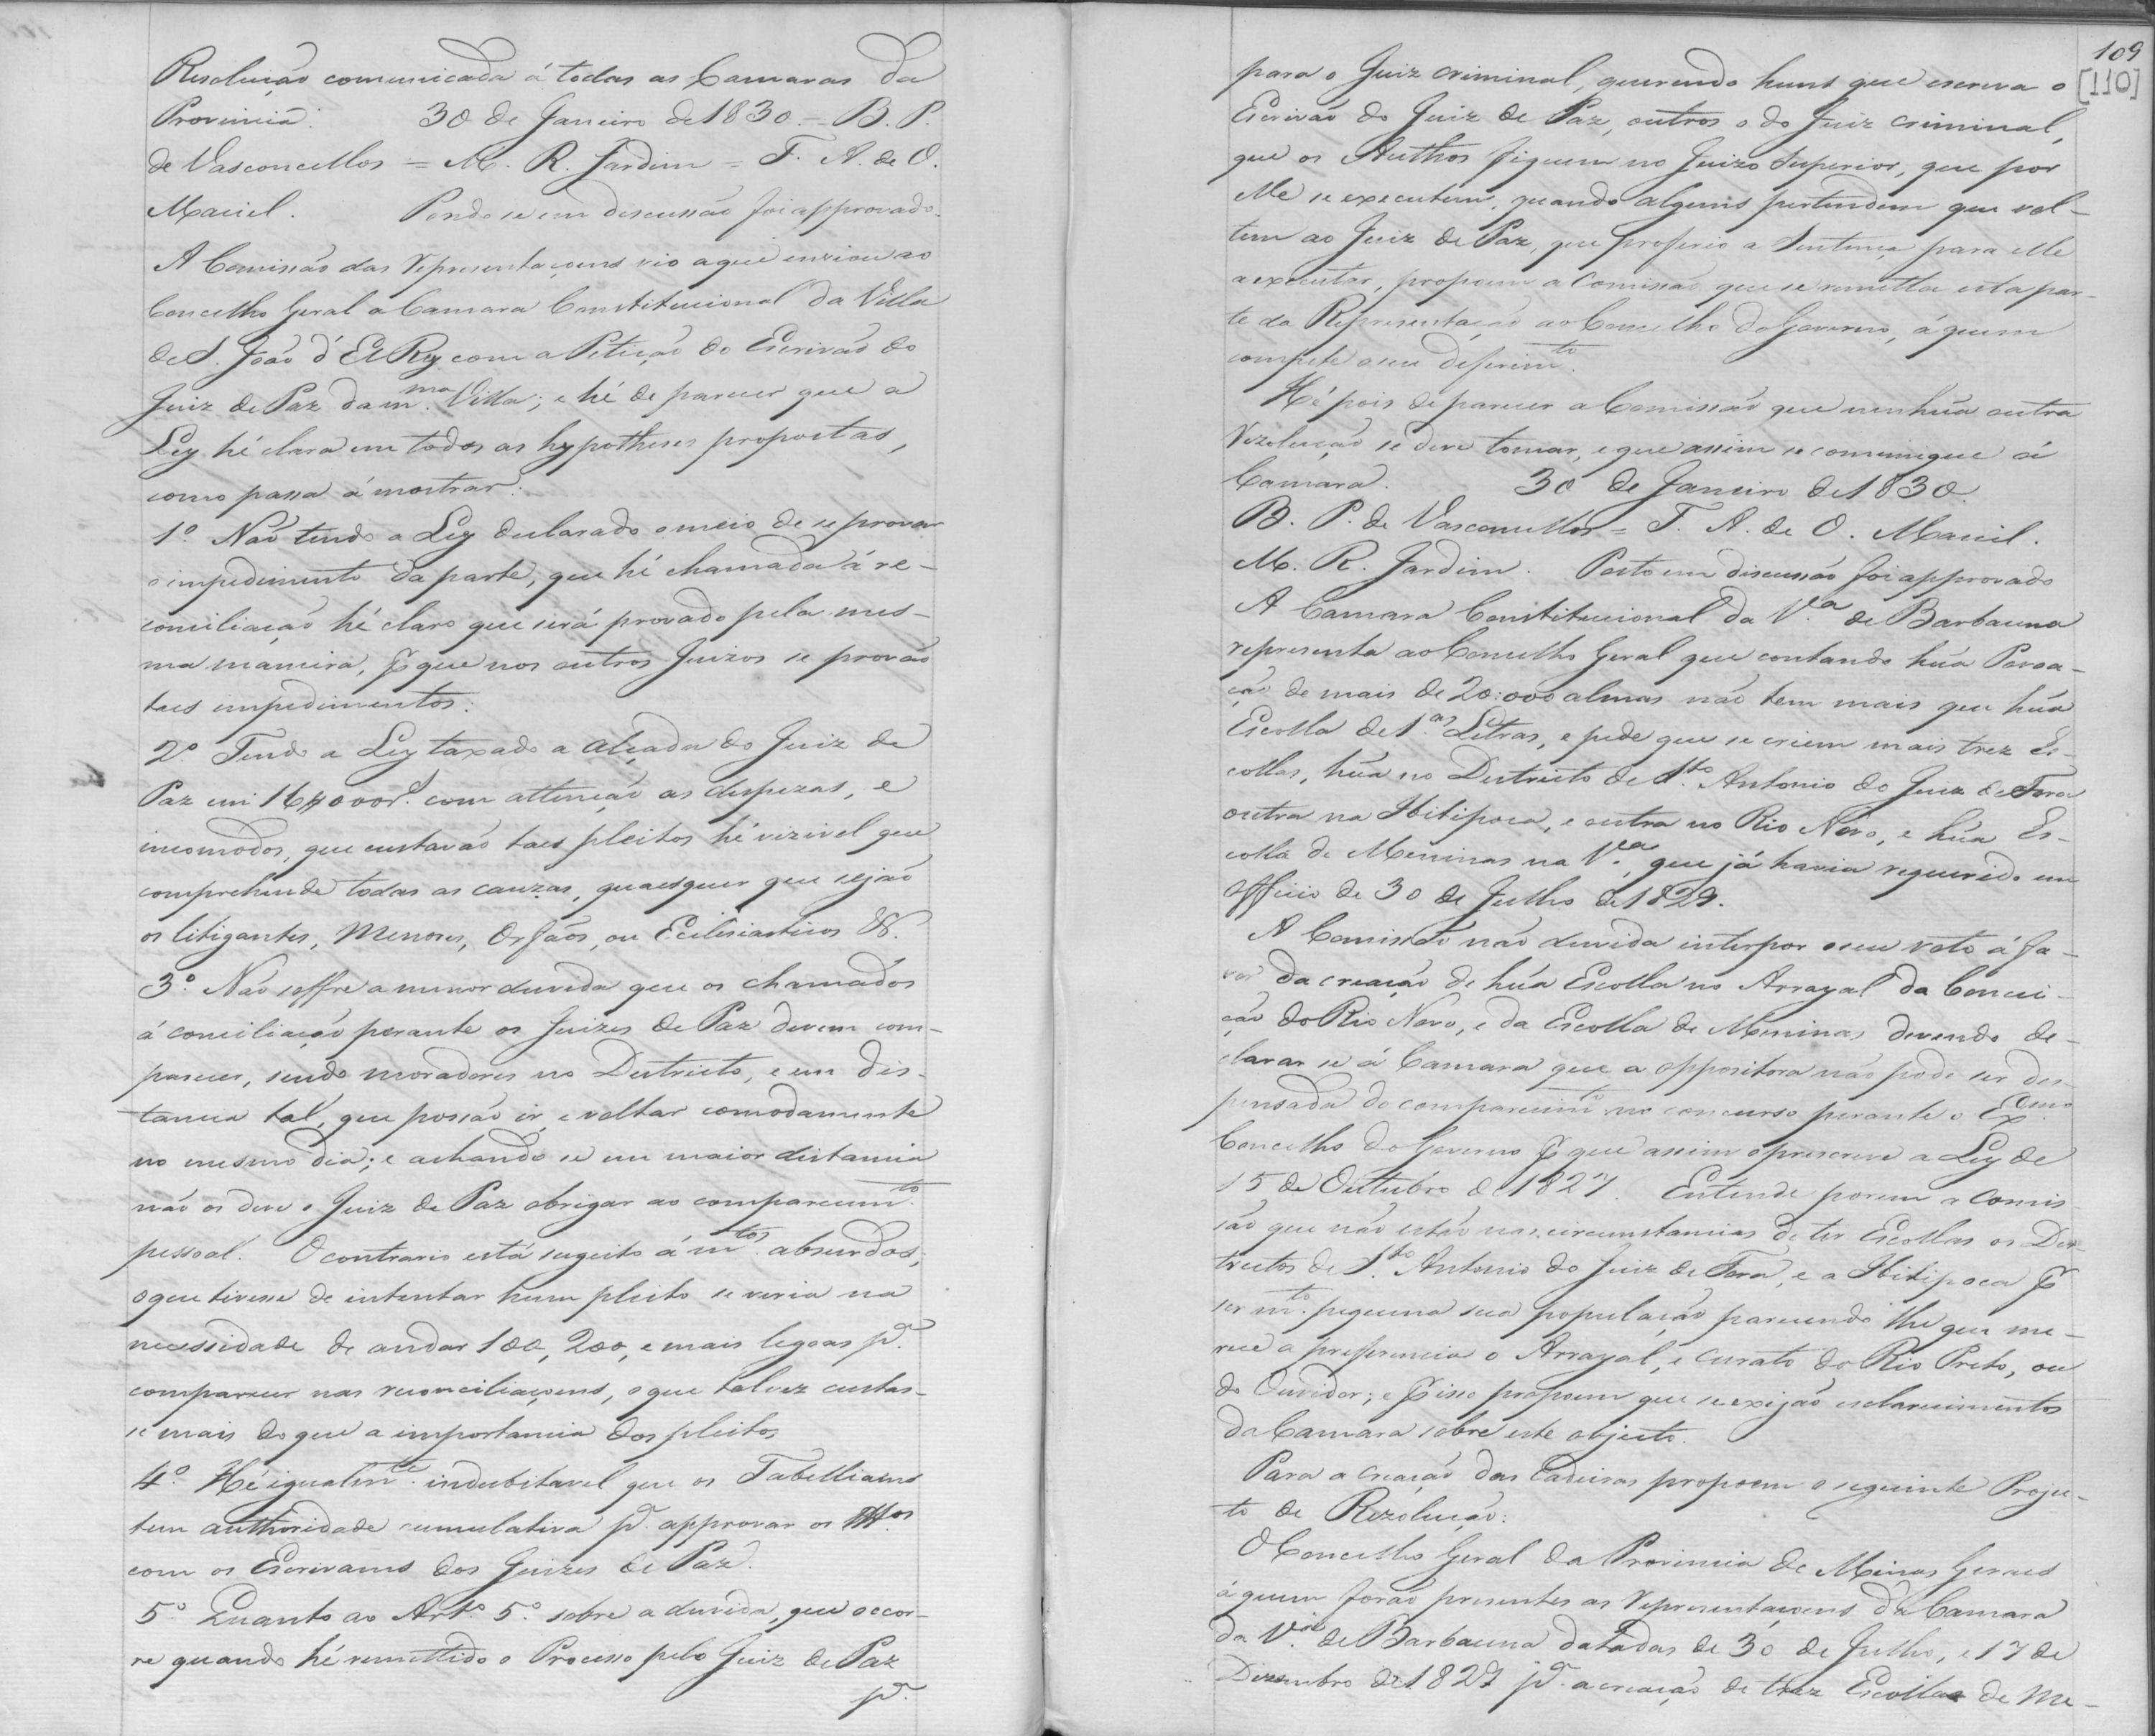 Resolução comunicada á todas as Camaras da
Provincia. 30 de Janeiro de 1830. = B. P.
de Vasconcellos = M. R. Jardim = F. A. de O.
Maciel. Pondo se em discussão foi approvado.
A Comissão das Representaçoens vio a que enviou ao
Concelho Geral a Camara Constitucional da Villa
de S. João d'El Rey com a Petição do Escrivão do
Juiz de Paz da m.ma Villa; e hé de parecer que a
Ley hé clara em todas as hypotheses propostas,
como passa á mostrar:
1º. Não tendo a Ley declarado o meio de se provar
o impedimento da parte, que hé chamada á re-
conciliação hé claro que será provado pela mes-
ma maneira, p que nos outros Juizos se provão
taes impedimentos.
2º. Tendo a Ley taxado a alçada do Juiz de
Paz em 16$000r.s com attenção as despezas, e
incomodos, que custavão taes pleitos hé vizivel que
comprehende todas as cauzas, quaesquer que sejão
os litigantes, Menores, Orfãos, ou Eclesiasticos &.
3º. Não soffre a menor duvida que os chamados
á conciliação perante os Juizes de Paz devem com-
parecer, sendo moradores no Destricto, e em dis-
tancia tal, que possão ir, e voltar comodamente
no mesmo dia; e achando se em maior distancia
não os deve o Juiz de Paz obrigar ao comparecim.to
pessoal. O contrario está sugeito á m.tos absurdos;
o que tivesse de intentar hum pleito se veria na
necessidade de andar 100, 200, e mais legoas p.a
comparecer nas reconciliaçoens, o que talvez custas-
se mais do que a importancia dos pleitos
4º. Hé igualm.te indubitavel que os Tabelliaens
tem authoridade cumulativa p.a approvar os TTos
com os Escrivaens dos Juizes de Paz.
5º. Quanto ao Art.º 5.º sobre a duvida, que occor-
re quando hé remettido o Processo pelo Juiz de Paz
p.a
109
[110]
para o Juiz criminal, querendo huns que escreva o
Escrivão do Juiz de Paz, outros o do Juiz criminal,
que os Authos fiquem no Juizo Superior, que por
elle se executem, quando alguns pertendem que vol-
tem ao Juiz de Paz, que proferio a Sentença para elle
a executar, propoem a Comissão que se remetta esta par-
te da Representação ao Concelho do Governo, á quem
compete o seu deferim.to
Hé pois de parecer a Comissão que nenhũa outra
Rezolução se deve tomar, e que assim se comunique á
Camara. 30 de Janeiro de 1830.
B. P. de Vasconcellos = F. A. de O. Maciel.
M. R. Jardim. Posto em discussão foi approvado
A Camara Constitucional da V.a de Barbacena
representa ao Concelho Geral que contando hũa Povoa-
ção de mais de 20:000 almas não tem mais que hũa
Escolla de 1.as Letras, e pede que se criem mais trez Es-
collas, hũa no Destricto de S.to Antonio do Juiz de Fora
outra na Ibitipoca, e outra no Rio Novo, e hũa Es-
colla de Meninas na V.a, que já havia requerido em
Officio de 30 de Julho de 1829.
A Comissão não duvida interpor o seu voto á fa-
vor da creação de hũa Escolla no Arrayal da Concei-
ção do Rio Novo, e da Escolla de Meninas devendo de-
clarar se á Camara que a oppositora não pode ser des-
pensada do comparecim.to no concurso perante o Ex.mo
Concelho do Governo p que assim o prescreve a Ley de
15 de Outubro de 1827. Entende porem a Comis
são que não estão nas circumstancias de ter Escollas os Des-
trictos de S.to Antonio do Juiz de Fora, e a Ibitipoca p
ser m.to pequena sua população parecendo lhe que me-
rece a preferencia o Arrayal, e Curato do Rio Preto, ou
do Ouvidor; e p isso propoem que se exijão esclarecimentos
da Camara sobre este objecto.
Para a creação das Cadeiras propoem o seguinte Projec-
to de Rezolução:
O Concelho Geral da Provincia de Minas Geraes
á quem forão presentes as Representaçoens da Camara
da V.a de Barbacena datadas de 30 de Julho, e 17 de
Dezembro de 1829 p.a a creação de trez Escollas de Me-